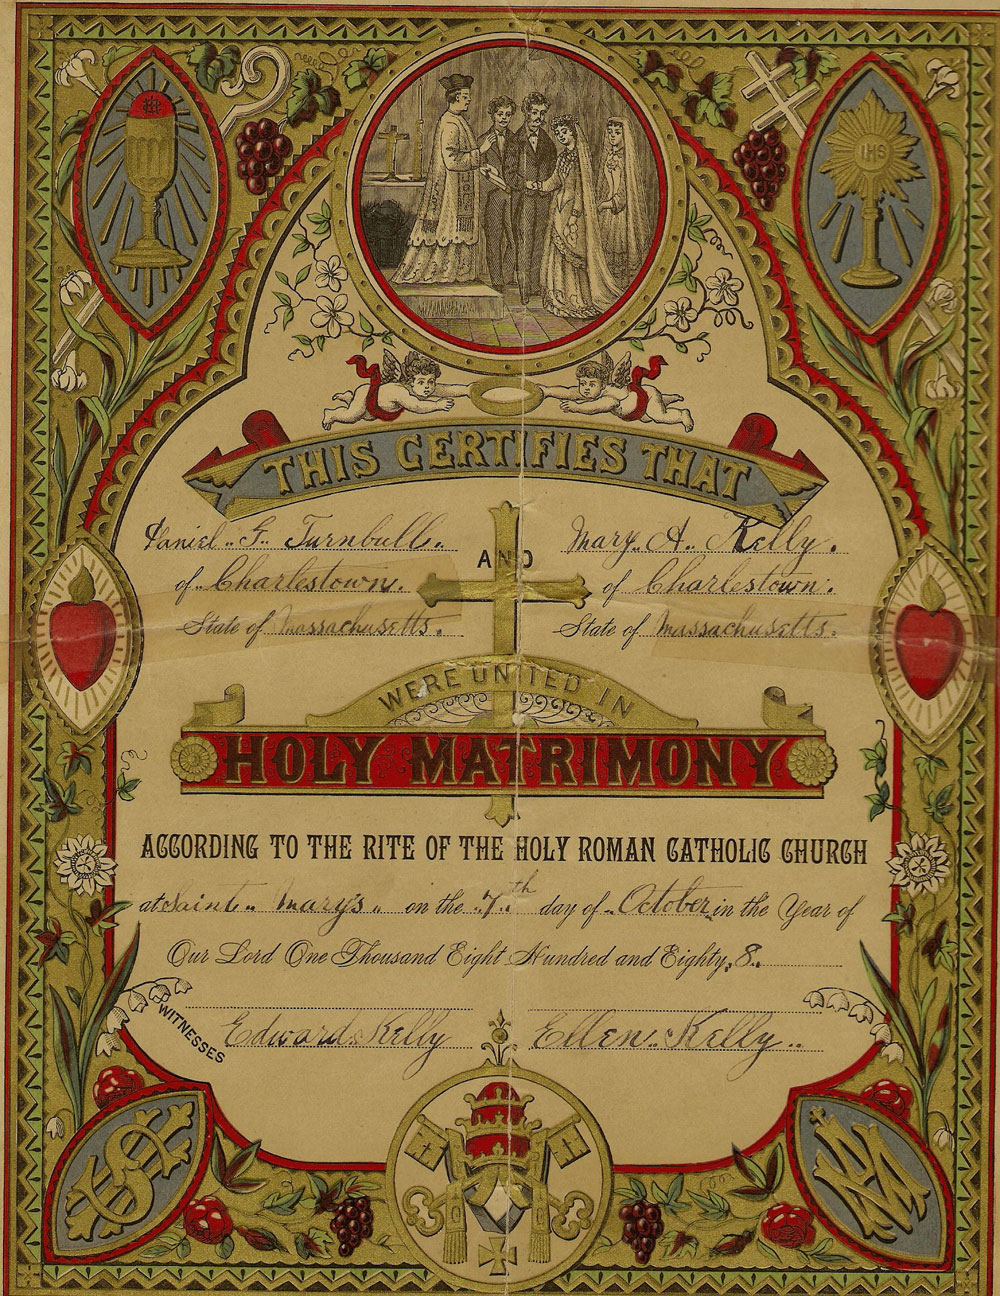 IHS
THIS CERTIFIES THAT
Daniel G. Turnbull. AND Mary A. Kelly.
of Charlestown. of Charlestown.
State of Massachusetts. State of Massachusetts.
WERE UNITED IN
HOLY MATRIMONY
ACCORDING TO THE RITE OF THE HOLY ROMAN CATHOLIC CHURCH
at Saint Mary's on the 7th day of October in the Year of
Our Lord One Thousand Eight Hundred and Eighty, 8.
WITNESSES
Edward Kelly Ellen Kelly